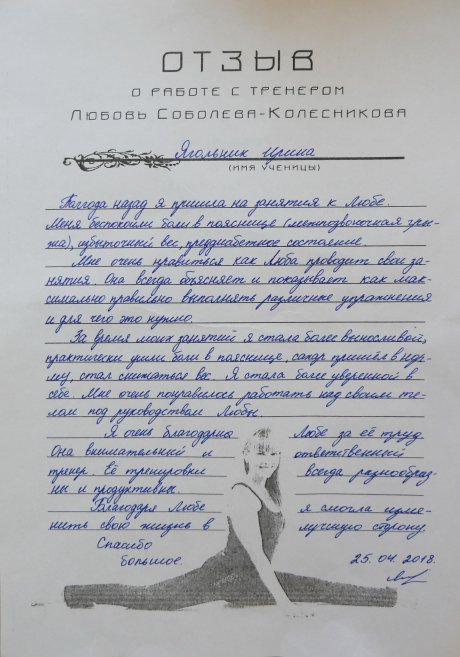 ОТЗЫВ
О РАБОТЕ С ТРЕНЕРОМ
ЛЮБОВЬ СОБОЛЕВА-КОЛЕСНИКОВА
Ягольник Ирина
(ИМЯ УЧЕНИЦЫ)
Полгода назад я пришла на занятия к Любе.
Меня беспокоили боли в пояснице (межпозвоночная гры-
жа), избыточный вес, преддиабетное состояние.
Мне очень нравиться как Люба проводит свои за-
нятия. Она всегда объясняет и показывает как мак-
симально правильно выполнять различные упражнения
и для чего это нужно.
За время моих занятий я стала более выносливой,
практически ушли боли в пояснице, сахар пришёл в нор-
му, стал снижаться вес. Я стала более уверенной в
себе. Мне очень понравилось работать над своим те-
лом под руководством Любы.
Я очень благодарна Любе за её труд.
Она внимательный и ответственный
тренер. Её тренировки всегда разнообраз-
ны и продуктивны.
Благодаря Любе я смогла изме-
нить свою жизнь в лучшую сторону.
Спасибо
большое.
25.04.2018.